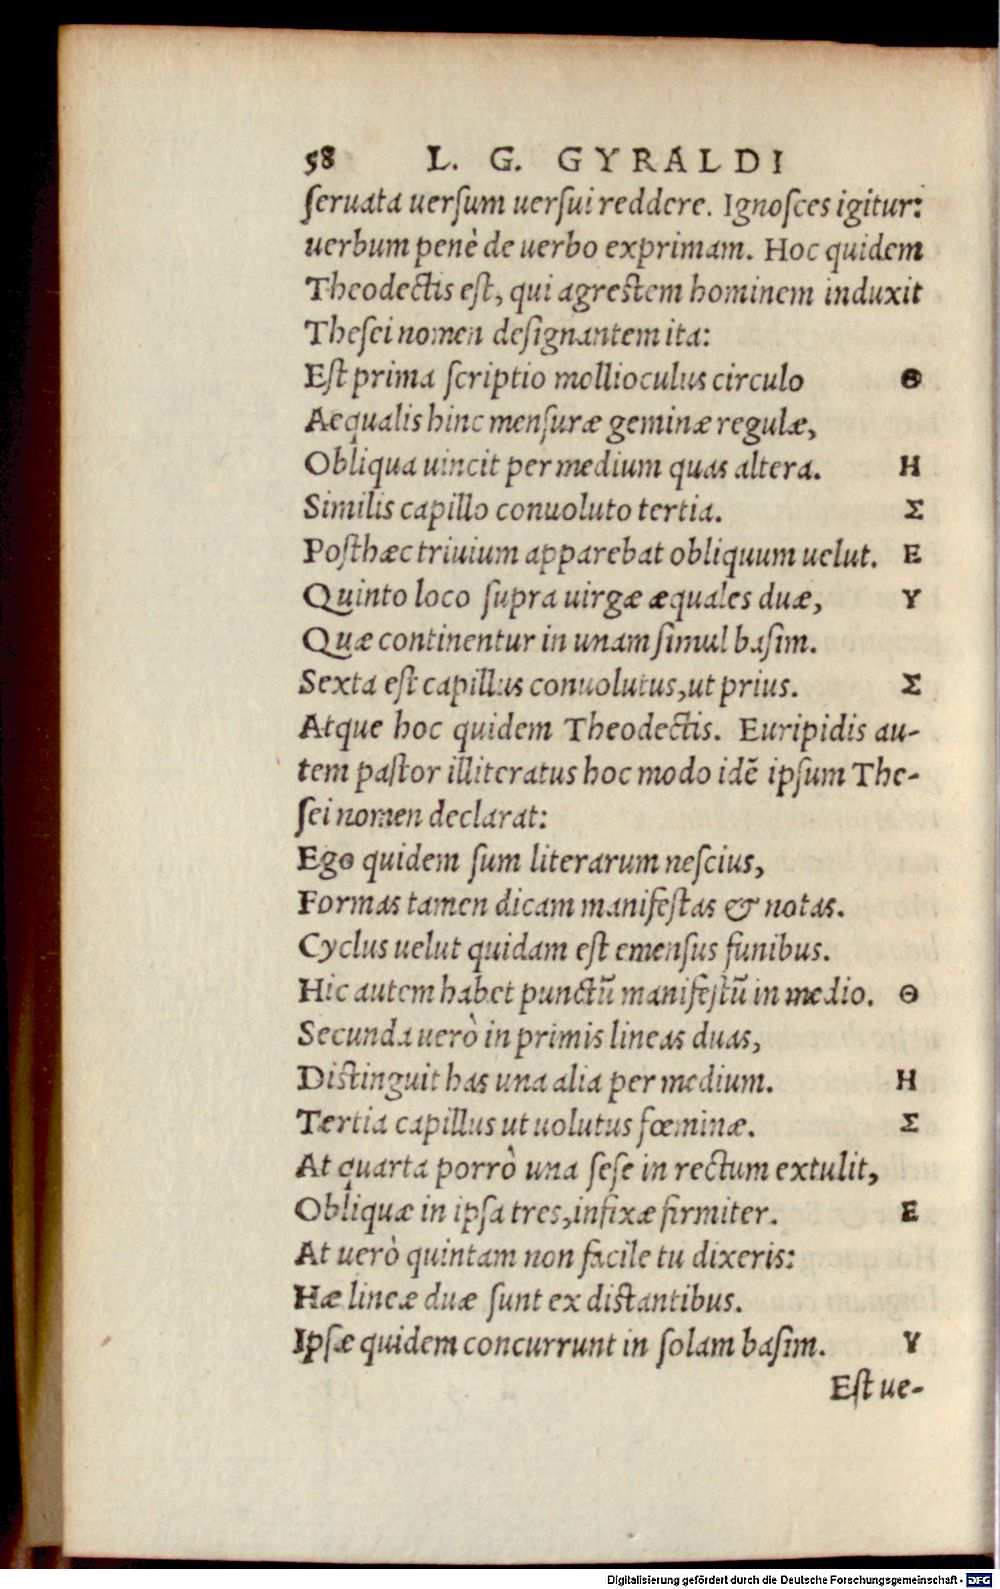 58 L. G. GYRALDI
ſeruata uerſum uerſui reddere. Ignoſces igitur:
uerbum penè de uerbo exprimam. Hoc quidem
Theodectis eſt, qui agreſtem hominem induxit
Theſei nomen deſignantem ita:
Eſt prima ſcriptio mollioculus circulo Θ
Aequalis hinc menſuræ geminæ regulæ,
Obliqua uincit per medium quas altera. Η
Similis capillo conuoluto tertia. Σ
Poſthæc triuium apparebat obliquum uelut. Ε
Quinto loco ſupra uirgæ æquales duæ, Υ
Quæ continentur in unam ſimul baſim.
Sexta eſt capillus conuolutus, ut prius. Σ
Atque hoc quidem Theodectis. Euripidis au-
tem paſtor illiteratus hoc modo idē ipſum The-
ſei nomen declarat:
Ego quidem ſum literarum neſcius,
Formas tamen dicam manifeſtas & notas.
Cyclus uelut quidam eſt emenſus funibus.
Hic autem habet punctū manifeſtū in medio. Θ
Secunda uerò in primis lineas duas,
Diſtinguit has una alia per medium. Η
Tertia capillus ut uolutus fœminæ. Σ
At quarta porrò una ſeſe in rectum extulit,
Obliquæ in ipſa tres, infixæ firmiter. Ε
At uerò quintam non facile tu dixeris:
Hæ lineæ duæ ſunt ex diſtantibus.
Ipſæ quidem concurrunt in ſolam baſim. Υ
Eſt ue-
Digitalisierung gefördert durch die Deutsche Forschungsgemeinschaft - DFG